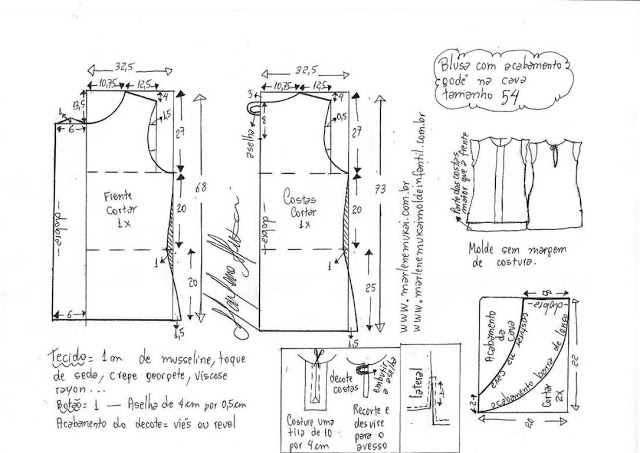 32,5
10,75 12,5
13,5
1
6
4
1,5
27
68
20
20
1
1,5
6
dobra
Frente
Cortar
1x
32,5
10,75 12,5
3
8
aselha
4
0,5
27
73
20
25
1
1,5
dobra
Costas
Cortar
1x
www.marlenemukai.com.br
www.marlenemukaimoldeinfantil.com.br
Blusa com acabamento
godê na cava
tamanho 54
Parte das costas
maior que a frente
Molde sem margem
de costura.
Acabamento
da
cava
costurar na cava
acabamento barra de lenço
dobra
Cortar
2x
22
2
Tecido = 1 m de musseline, toque
de seda, crepe georgete, viscose
rayon...
Botão = 1 — Aselha de 4 cm por 0,5 cm
Acabamento do decote = viés ou revel
decote
costas
Costure uma
tira de 10
por 4 cm
Embutir
a aselha
Recorte e
desvire
para o
avesso
lateral